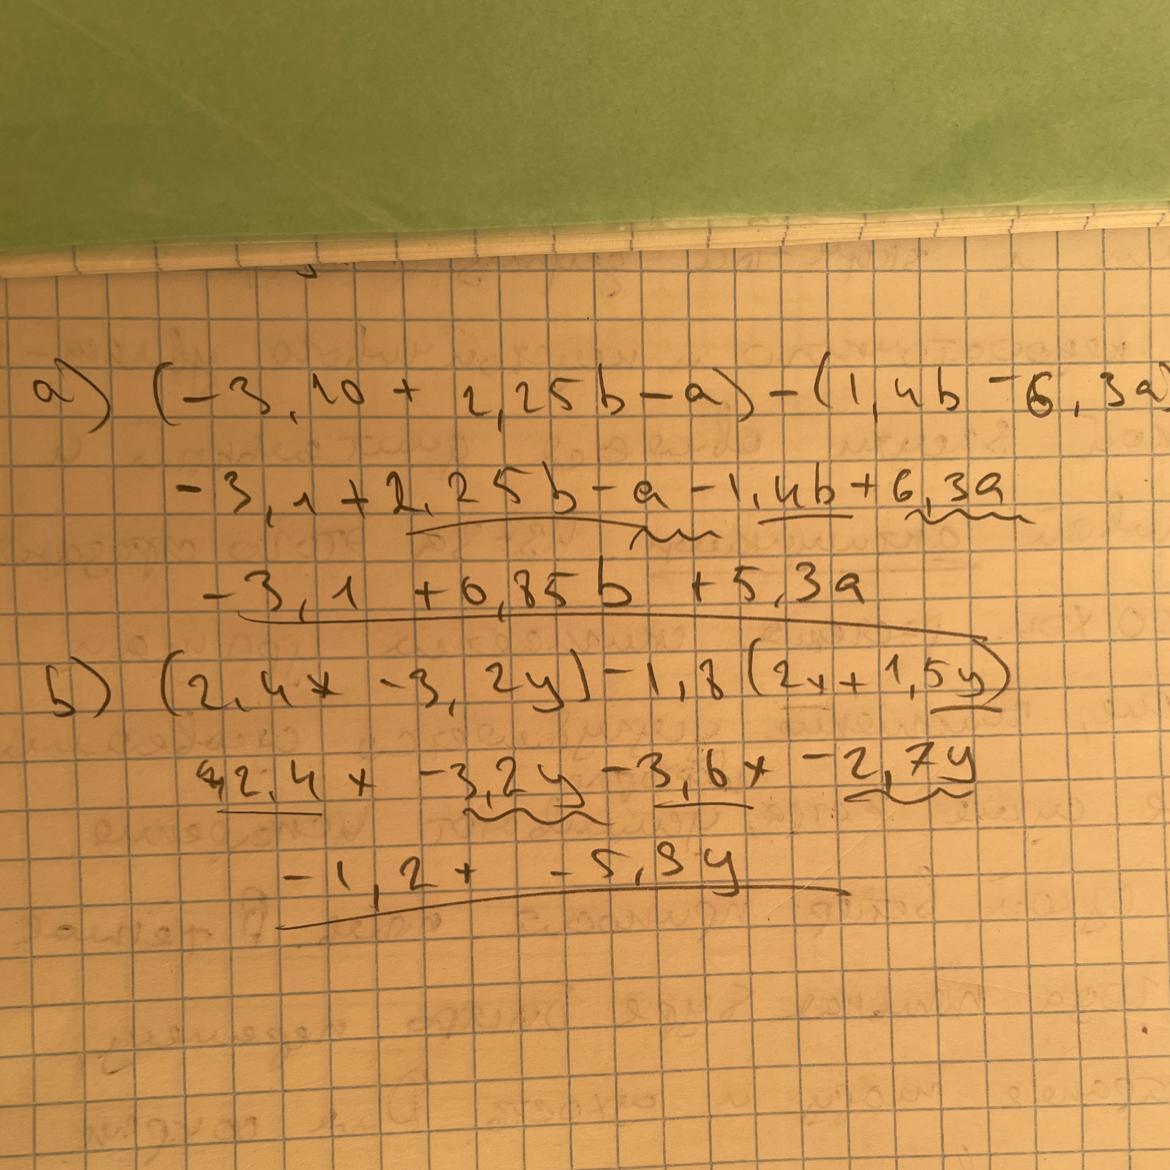 a) (-3,10 + 2,25b - a) - (1,4b - 6,3a)
-3,1 + 2,25b - a - 1,4b + 6,3a
-3,1 + 0,85b + 5,3a
b) (2,4x - 3,2y) - 1,8 (2x + 1,5y)
2,4x - 3,2y - 3,6x - 2,7y
-1,2x - 5,9y